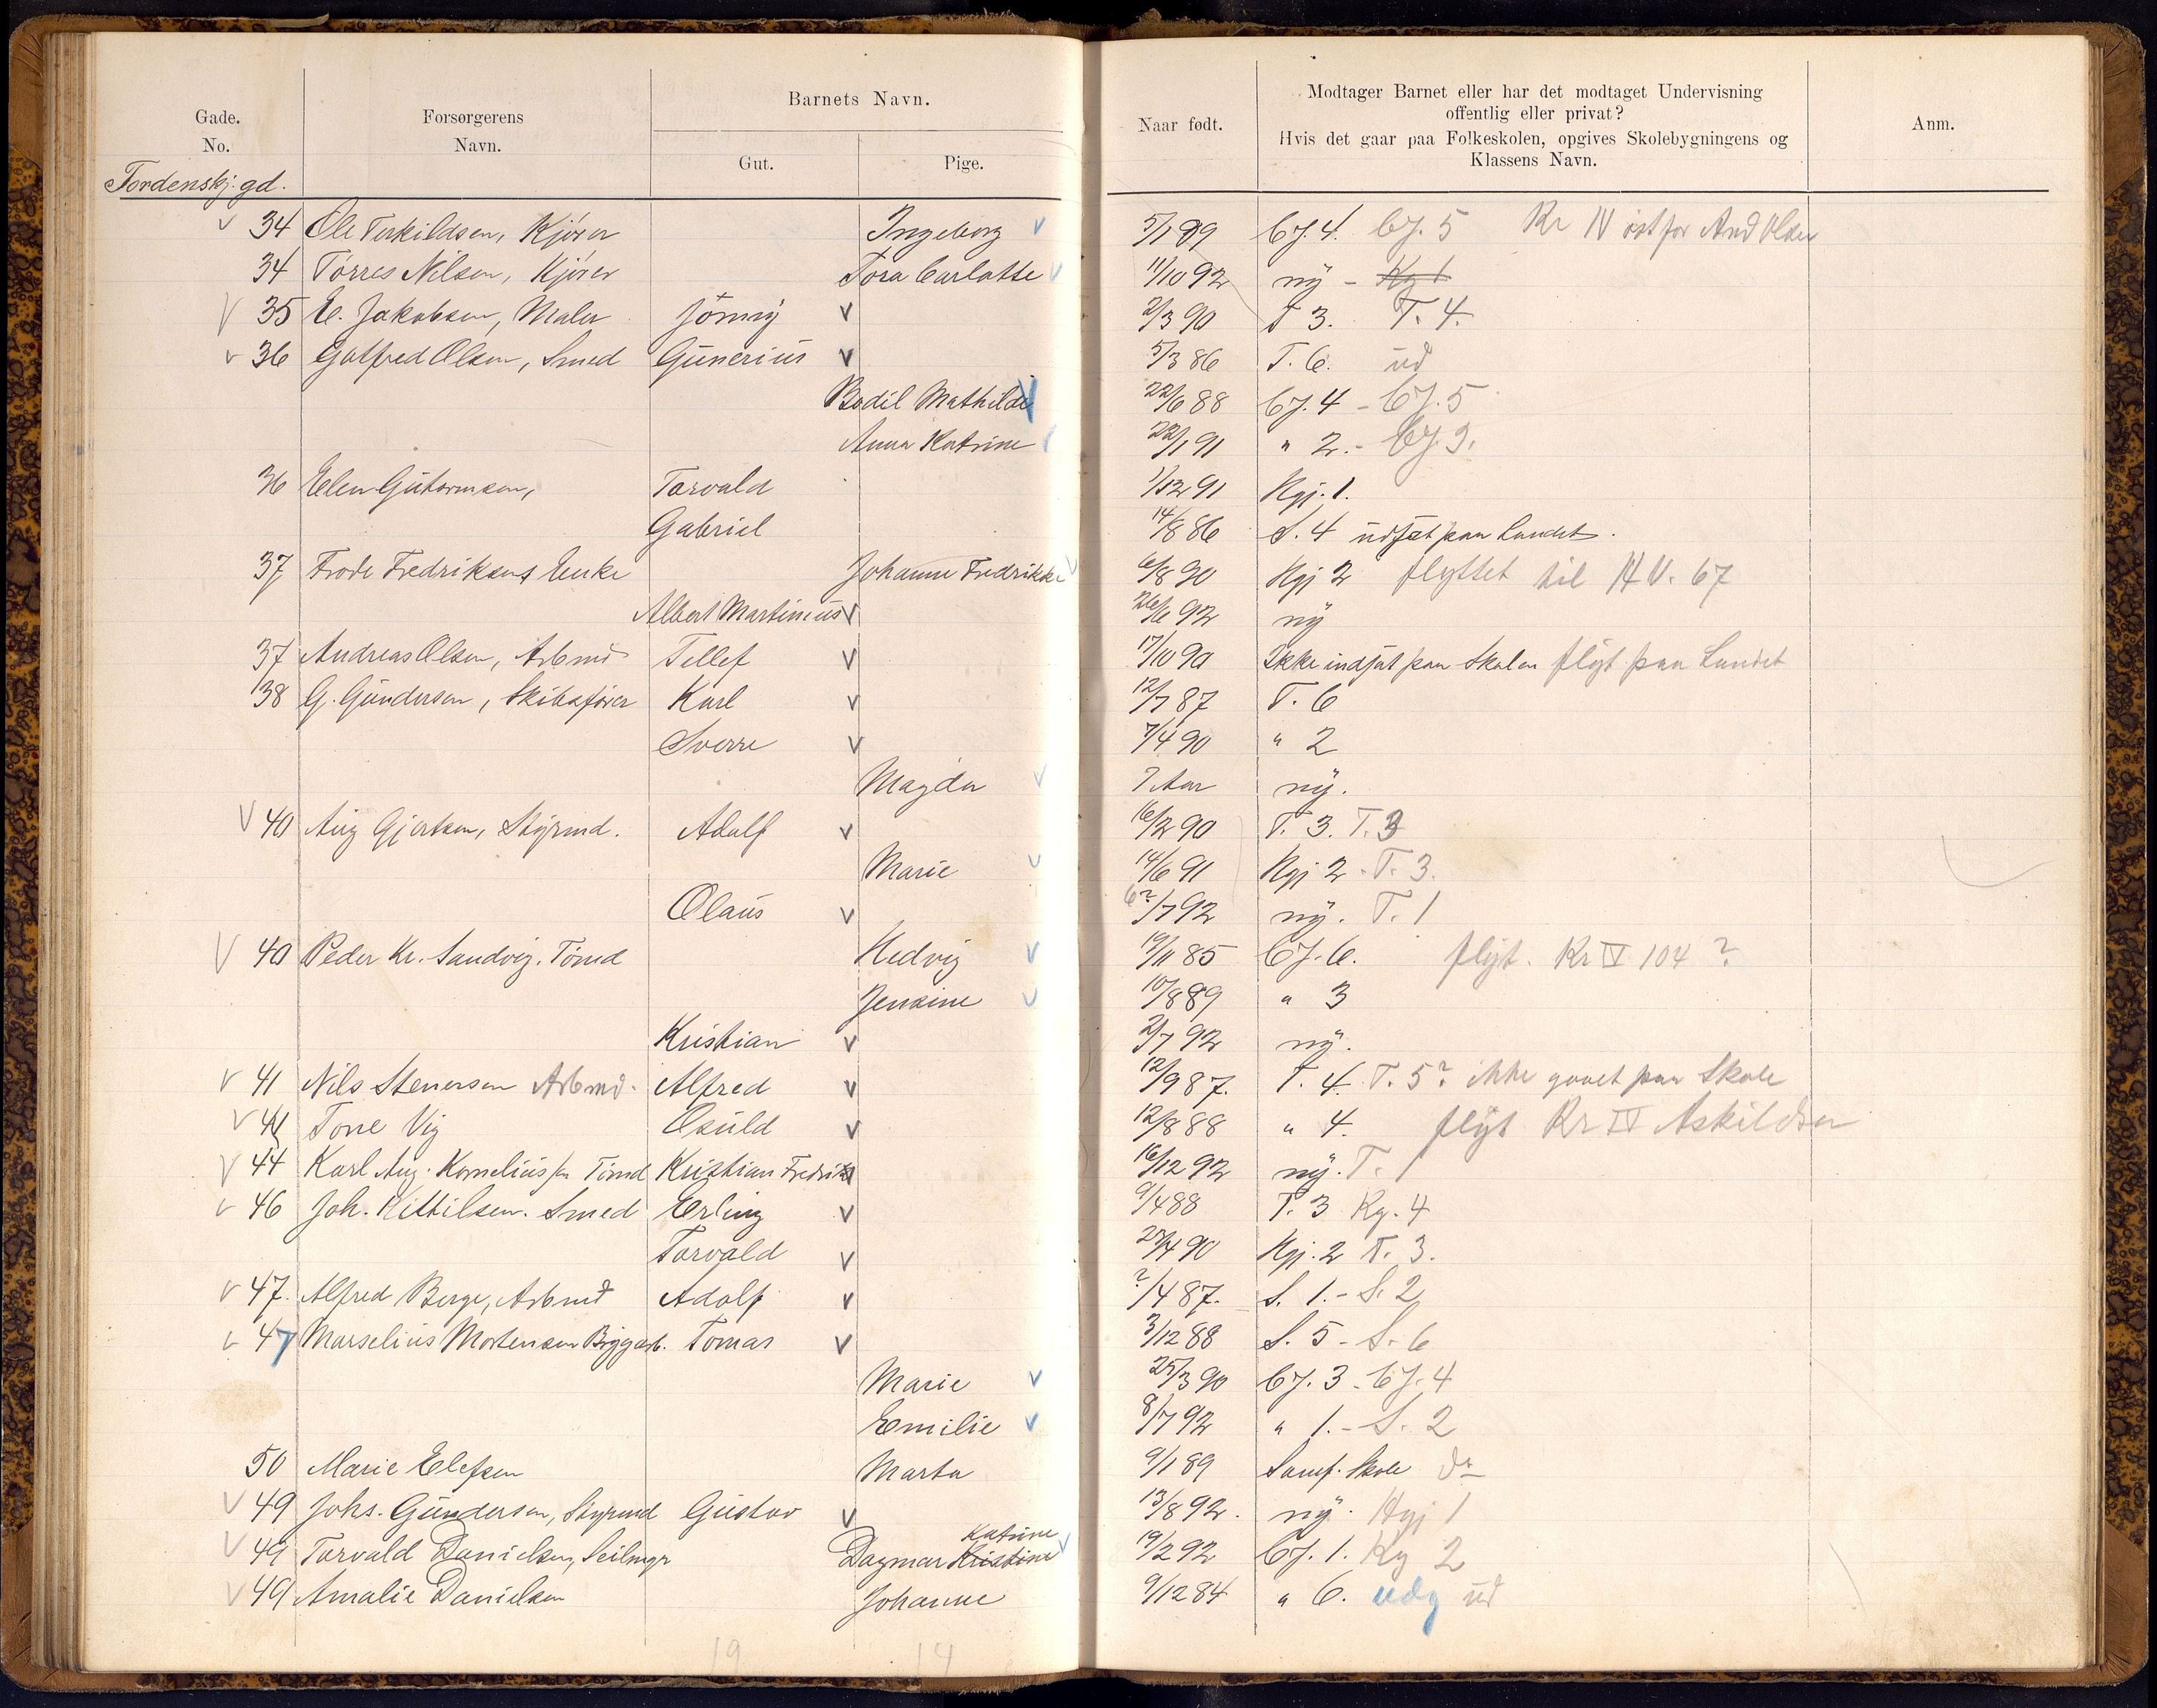 Gade.
No.
Forsørgerens
Navn.
Barnets Navn.
Gut.
Pige.
Naar født.
Modtager Barnet eller har det modtaget Undervisning
offentlig eller privat?
Hvis det gaar paa Folkeskolen, opgives Skolebygningens og
Klassens Navn.
Anm.
Tordenskj. gd.
34 Ole Terkildsen, Kjører Ingeborg 5/1 89 Cf. 4. Cf. 5 Kr IV østfor And Olsen
34 Tørres Nilsen, Kjører Tora Carlotte 11/10 92 ny - Kg 1
35 E. Jakobsen, Maler Jömy 2/3 90 T 3. T. 4.
36 Gotfred Olsen, Smed Gunerius 5/3 86 T. 6. ud
Bodil Mathilde 22/6 88 Cf. 4 - Cf. 5
Anna Katrine 22/1 91 " 2. - Cf 3.
36 Elen Gutormsen, Torvald 1/12 91 Kgj. 1.
Gabriel 14/8 86 S. 4 udsat paa Landet.
37 Frode Fredriksens Enke Johanne Fredrikke 6/8 90 Kgj 2 flyttet til H V. 67
Albert Martinius 26/6 92 ny
37 Andreas Olsen, Arbmd Tellef 17/10 90 Ikke indsat paa Skolen flyt paa Landet
38 G. Gundersen, Skibsfører Karl 12/7 87 T. 6
Sverre 7/4 90 " 2
Magda 7 Aar ny.
40 Aug Gjertsen, Styrmd. Adolf 16/2 90 T. 3. T. 3
Marie 14/6 91 Kgj 2 - T. 3.
Olaus 6?/7 92 ny. T. 1
40 Peder Kr. Sandvig. Tømd Hedvig 19/11 85 Cf. 6. flyt. Kr IV 104 ?
Jensine 10/8 89 " 3
Kristian 2/7 92 ny.
41 Nils Stenersen Arbmd. Alfred 12/9 87. T. 4. T. 5? ikke gaaet paa Skole
41 Tore Vig Osuld 12/8 88 " 4. flyt Kr IV Askildsen
44 Karl Aug. Korneliussen Tømd Kristian Fredrik 16/12 92 ny. T. 1
46 Joh. Kittilsen. Smed Erling 9/4 88 T. 3 Kg. 4
Torvald 27/4 90 Kgj. 2 T. 3.
47. Alfred Berge, Arbmd Adolf ?/4 87. S. 1. - S. 2
47 Marselius Mortensen Bryggearb. Tomas 3/12 88 S. 5 - S. 6
Marie 25/3 90 Cf. 3 - Cf. 4
Emilie 8/7 92 " 1. - S. 2
50 Marie Elefsen Marta 9/1 89 Samf. Skole do
49 Johs. Gundersen, Styrmd Gustav 13/8 92. ny. Kgj 1
49 Torvald Danielsen, Seilmgr Dagmar Kristine Katrine 19/2 92 Cf. 1. Kg 2
49 Amalie Danielsen Johanne 9/12 84 " 6. udg ud
19 14